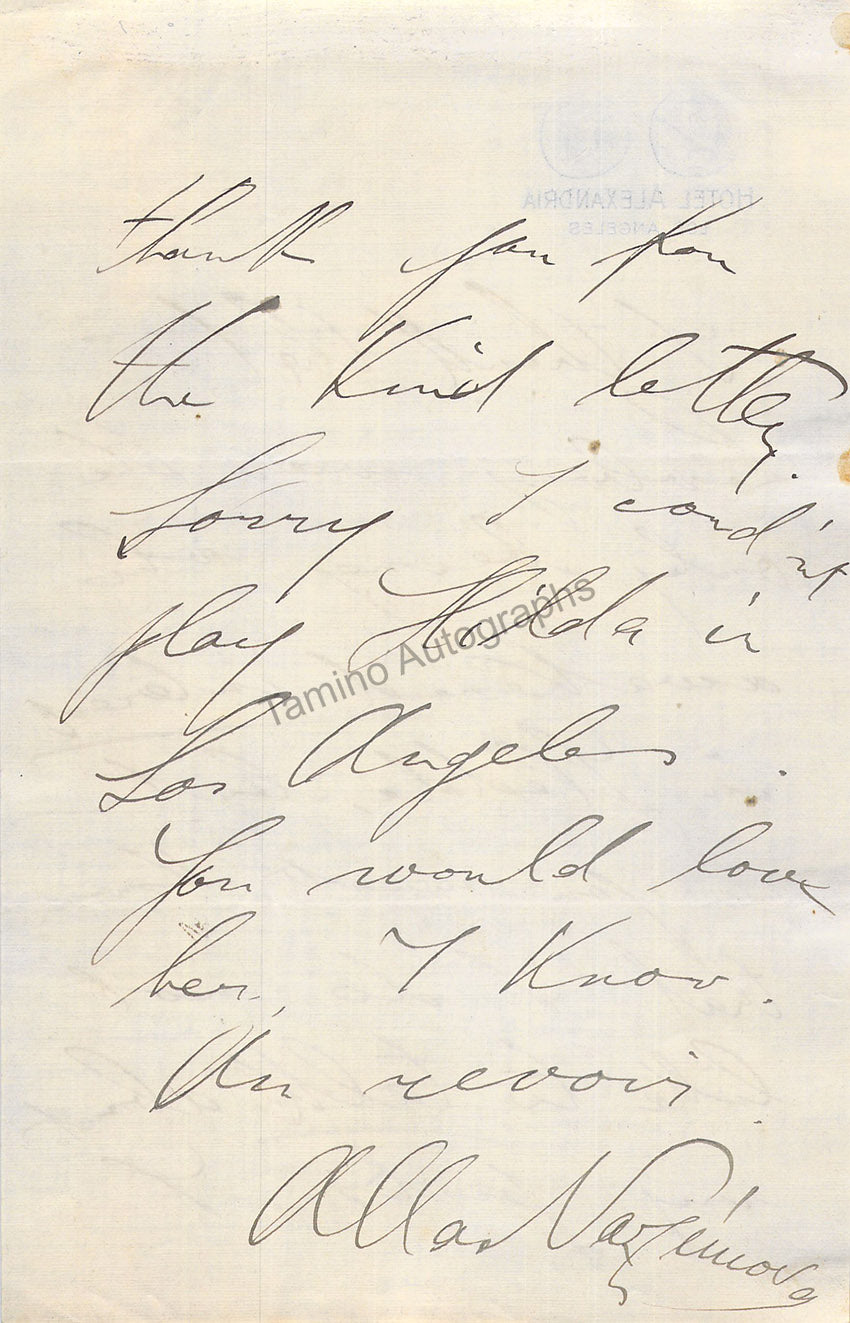 HOTEL ALEXANDRIA
LOS ANGELES
thank you for
the kind letter.
Sorry I coud'nt
play Hilda in
Los Angeles.
You would love
her, I know.
Au revoir.
Alla Nazimova
Tamino Autographs